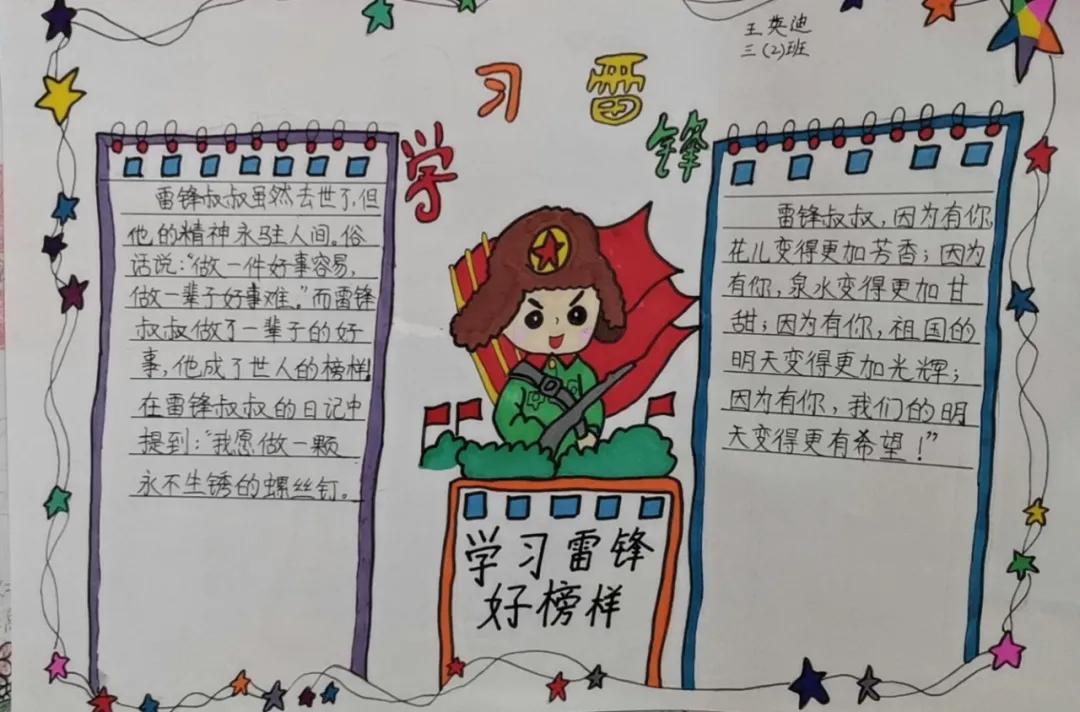 王英迪
三(2)班
学习雷锋
雷锋叔叔虽然去世了,但
他的精神永驻人间。俗
话说:“做一件好事容易,
做一辈子好事难。”而雷锋
叔叔做了一辈子的好
事,他成了世人的榜样!
在雷锋叔叔的日记中
提到:“我愿做一颗
永不生锈的螺丝钉。
学习雷锋
好榜样
雷锋叔叔,因为有你,
花儿变得更加芳香;因为
有你,泉水变得更加甘
甜;因为有你,祖国的
明天变得更加光辉;
因为有你,我们的明
天变得更有希望!”